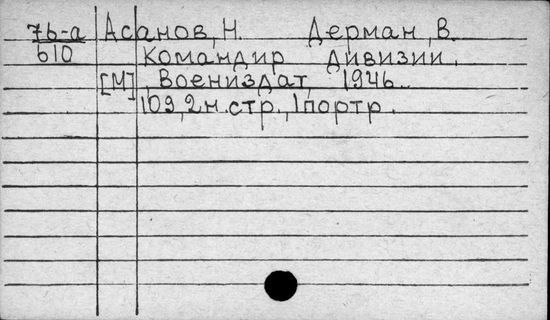 76-а Асанов, Н. Дерман, В.
610 Командир дивизии.
[М], Воениздат, 1946.
109, 2 н. стр., 1 портр.